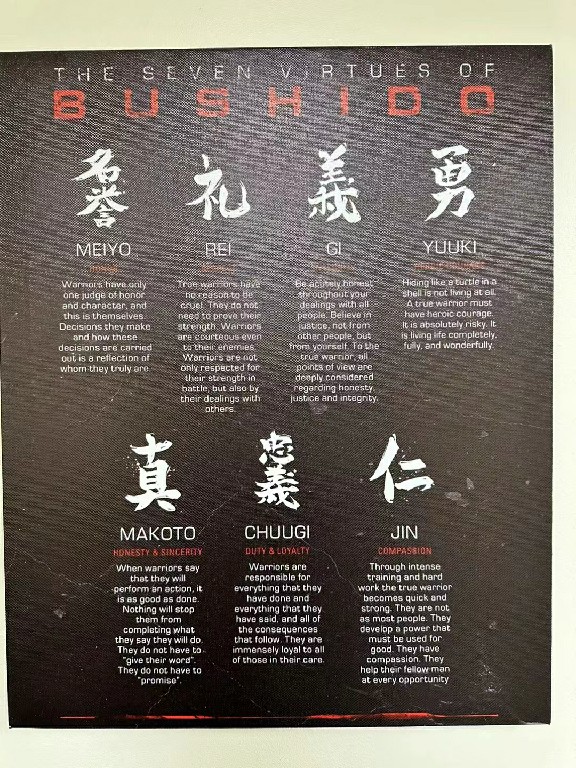 THE SEVEN VIRTUES OF
BUSHIDO
名誉
礼
義
勇
MEIYO
REI
GI
YUUKI
Warriors have only
one judge of honor
and character, and
this is themselves.
Decisions they make
and how these
decisions are carried
out is a reflection of
whom they truly are.
True warriors have
no reason to be
cruel. They do not
need to prove their
strength. Warriors
are courteous even
to their enemies.
Warriors are not
only respected for
their strength in
battle, but also by
their dealings with
others.
Be acutely honest
throughout your
dealings with all
people. Believe in
justice, not from
other people, but
from yourself. To the
true warrior, all
points of view are
deeply considered
regarding honesty,
justice and integrity.
Hiding like a turtle in a
shell is not living at all.
A true warrior must
have heroic courage.
It is absolutely risky. It
is living life completely,
fully, and wonderfully.
真
忠義
仁
MAKOTO
CHUUGI
JIN
HONESTY & SINCERITY
DUTY & LOYALTY
COMPASSION
When warriors say
that they will
perform an action, it
is as good as done.
Nothing will stop
them from
completing what
they say they will do.
They do not have to
"give their word".
They do not have to
"promise".
Warriors are
responsible for
everything that they
have done and
everything that they
have said, and all of
the consequences
that follow. They are
immensely loyal to all
of those in their care.
Through intense
training and hard
work the true warrior
becomes quick and
strong. They are not
as most people. They
develop a power that
must be used for
good. They have
compassion. They
help their fellow man
at every opportunity